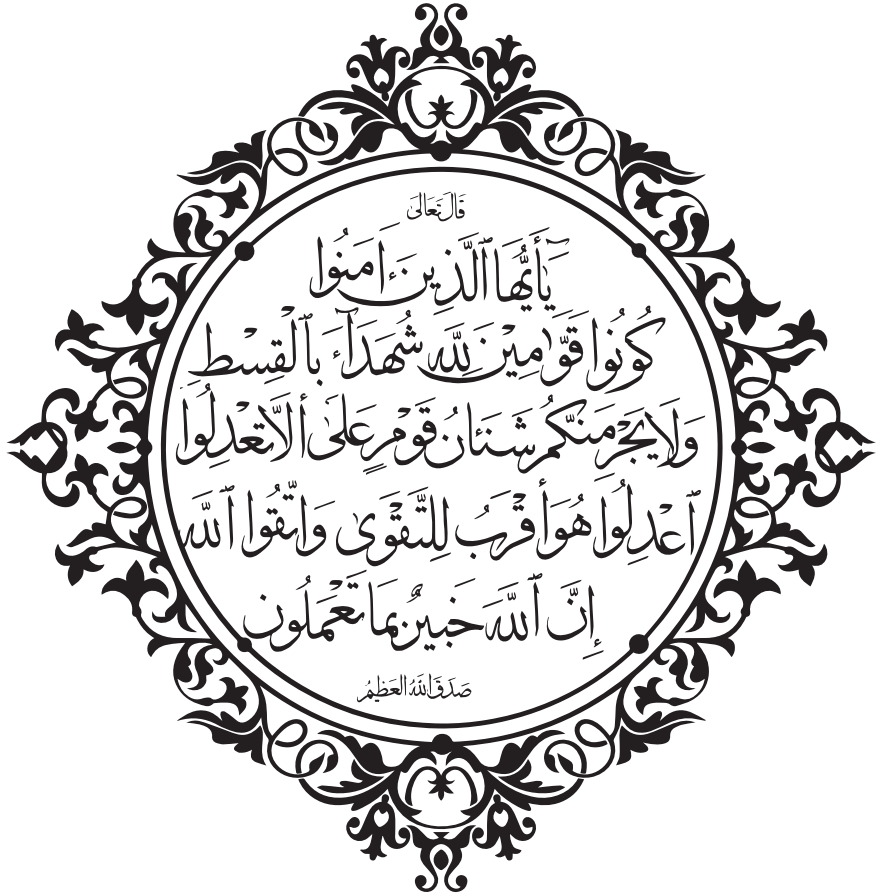 قَالَ تَعَالَى
يَٰٓأَيُّهَا ٱلَّذِينَ ءَامَنُوا
كُونُوا قَوَّٰمِيْنَ لِلَّهِ شُهَدَآءَ بِٱلْقِسْط
وَلَا يَجْرِمَنَّكُمْ شَنَـَٔانُ قَوْمٍ عَلَىٰ أَلَّا تَعْدِلُوا
ٱعْدِلُوا هُوَ أَقْرَبُ لِلتَّقْوَىٰ وَاتَّقُوا ٱللَّه
إِنَّ ٱللَّهَ خَبِيرٌ بِمَا تَعْمَلُون
صَدَقَ اللَّهُ العَظِيمُ